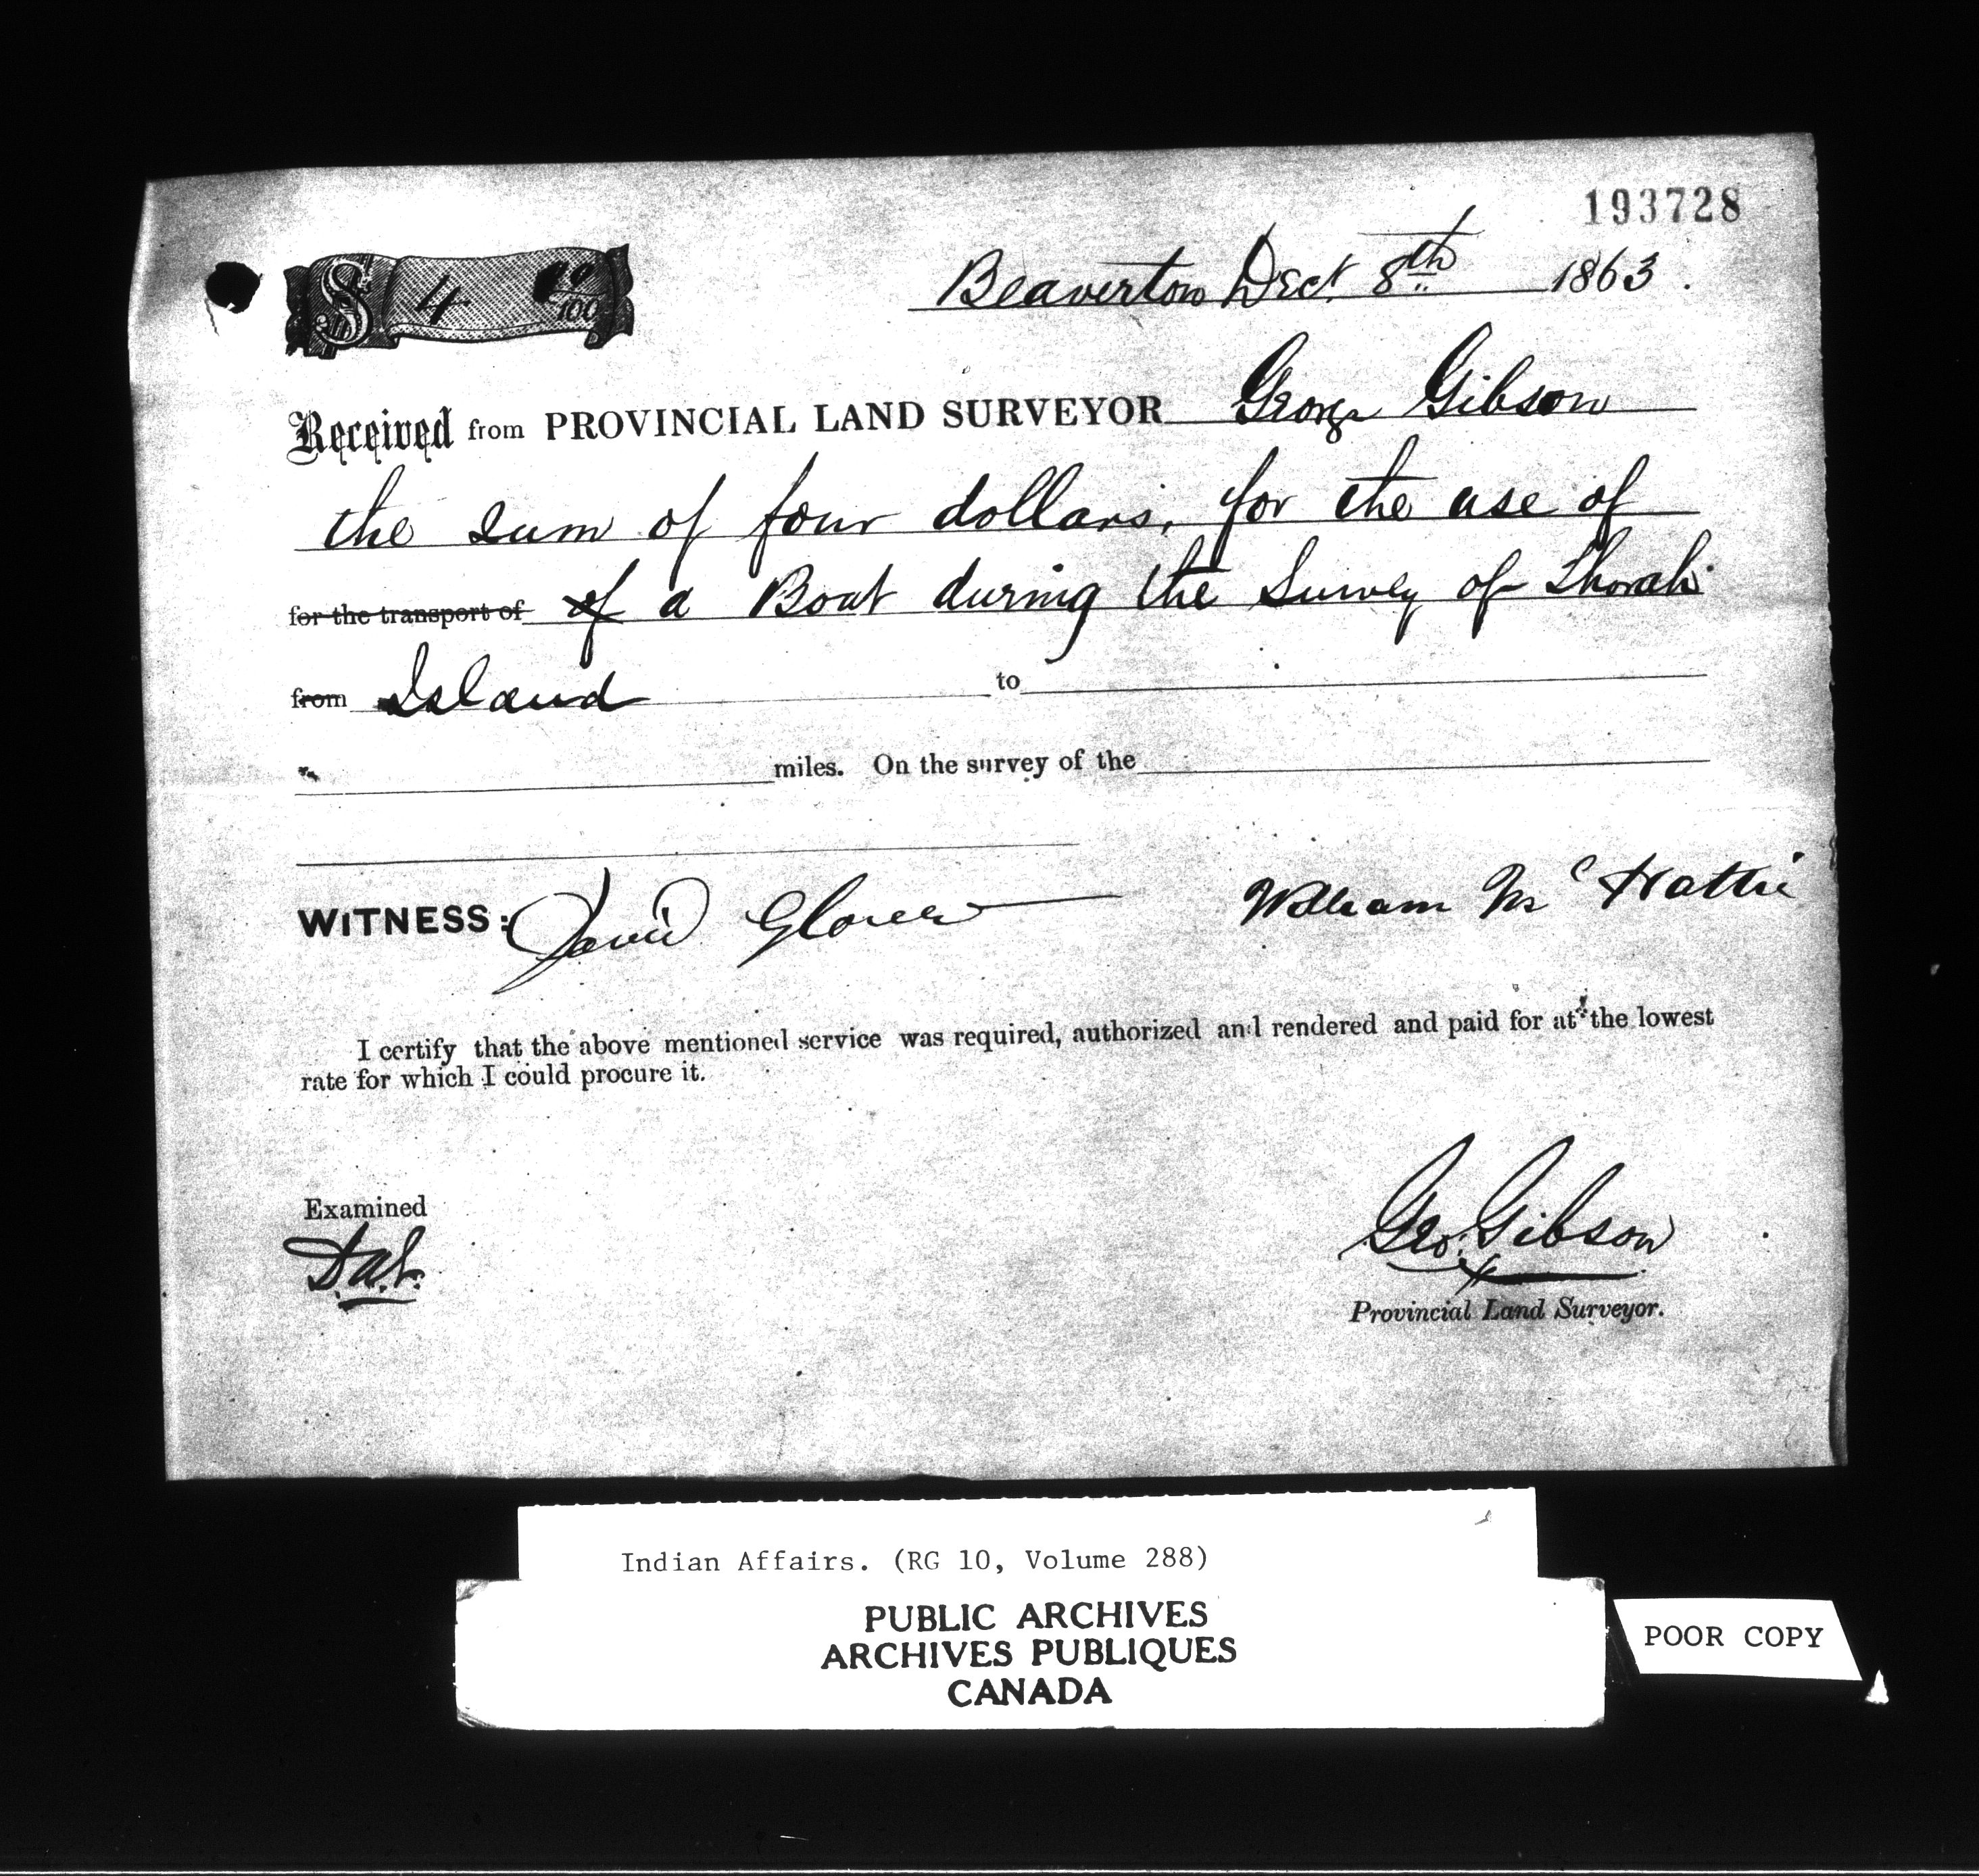 193728
$ 4 00/100
Beaverton Dect. 8th 1863.
Received from PROVINCIAL LAND SURVEYOR George Gibson
the sum of four dollars, for the use of
for the transport of of a Boat during the Survey of Thorah
from Island to
miles. On the survey of the
WITNESS: David Glover William McHattie
I certify that the above mentioned service was required, authorized and rendered and paid for at the lowest
rate for which I could procure it.
Examined
Geo. Gibson
Provincial Land Surveyor.
Indian Affairs. (RG 10, Volume 288)
PUBLIC ARCHIVES
ARCHIVES PUBLIQUES
CANADA
POOR COPY